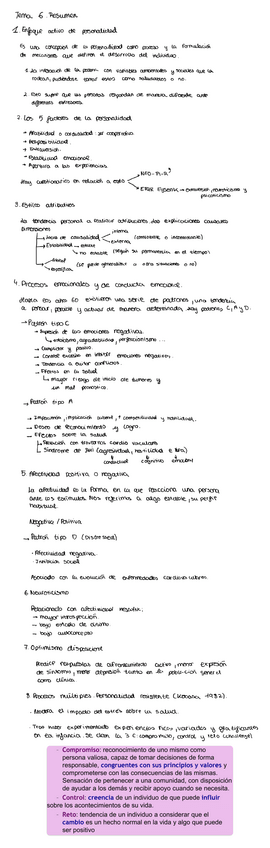 Tema 6 Resumen
1. Enfoque activo de personalidad
Es una concepción de la personalidad como proceso y la formulación
de mecanismos que definen el desarrollo del individuo.
1. La interacción de la person. con variables ambientales y sociales que la
rodean, pudiéndose
2. Esto supone que las personas respondan de manera diferente ante
diferentes estresores.
2. Los 5 factores de la personalidad
→ Amabilidad o cordialidad: ser cooperativo
→ Responsabilidad.
→ Extraversión.
→ Estabilidad emocional.
→ Apertura a las experiencias.
Hay cuestionarios en relación a esto
→ NEO-PI-R
→ EPQR Eysenck → extraversión, neuroticismo y
psicoticismo
3. Estilos atributivos
La tendencia personal a realizar atribuciones (dar explicaciones causales)
Dimensiones
→ Locus de causalidad
interna
externa
(consistente o intermitente)
→ Estabilidad
estable
no estable
(según su permanencia en el tiempo)
→ Global
específica
(se puede generalizar a otras situaciones o no)
4. Procesos emocionales y de conducta emocional.
Hacia los años 60 existieron una serie de patrones, una tendencia
a pensar, percibir y actuar de manera determinada, hay patrones C, A y D.
→ Patrón tipo C
→ Supresión de las emociones negativas.
→ estoicismo, agradabilidad, perfeccionismo ...
→ Cumplidor y pasivo.
→ Control excesivo en inhibir emociones negativas.
→ Tendencia a evitar conflictos.
→ Efectos en la salud
→ mayor riesgo de inicio de tumores y
un mal pronóstico.
→ Patrón tipo A
→ Impaciencia, implicación laboral, ↑ competitividad y hostilidad.
→ Deseo de reconocimiento y logro.
→ Efectos sobre la salud
→ Relación con trastornos cardio vasculares
→ Síndrome de AHI (agresividad, hostilidad e ira)
conductual cognitivo emocional
5. Afectividad positiva o negativa
La afectividad es la forma en la que reacciona una persona
ante los estímulos. Nos referimos a algo estable, su perfil
habitual.
Negativa / Positiva
→ Patrón tipo D (Distressed)
· Afectividad negativa
· Inhibición social
Asociado con la evolución de enfermedades cardiovasculares.
6. Neuroticismo
Relacionado con afectividad negativa:
→ mayor introspección
→ bajo estado de ánimo
→ bajo autoconcepto
7. Optimismo disposicional
Predice respuestas de afrontamiento activo, menor expresión
de síntomas, menor depresión tanto en la población general
como clínica.
8. Procesos múltiples. Personalidad resistente (Kobasa, 1982).
· Modera el impacto del estrés sobre la salud.
en la infancia. Se dan la 3 C: compromiso, control y reto (challenge).
· Compromiso: reconocimiento de uno mismo como
persona valiosa, capaz de tomar decisiones de forma
responsable, congruentes con sus principios y valores y
comprometerse con las consecuencias de las mismas.
Sensación de pertenecer a una comunidad, con disposición
de ayudar a los demás y recibir apoyo cuando se necesita.
· Control: creencia de un individuo de que puede influir
sobre los acontecimientos de su vida.
· Reto: tendencia de un individuo a considerar que el
cambio es un hecho normal en la vida y algo que puede
ser positivo